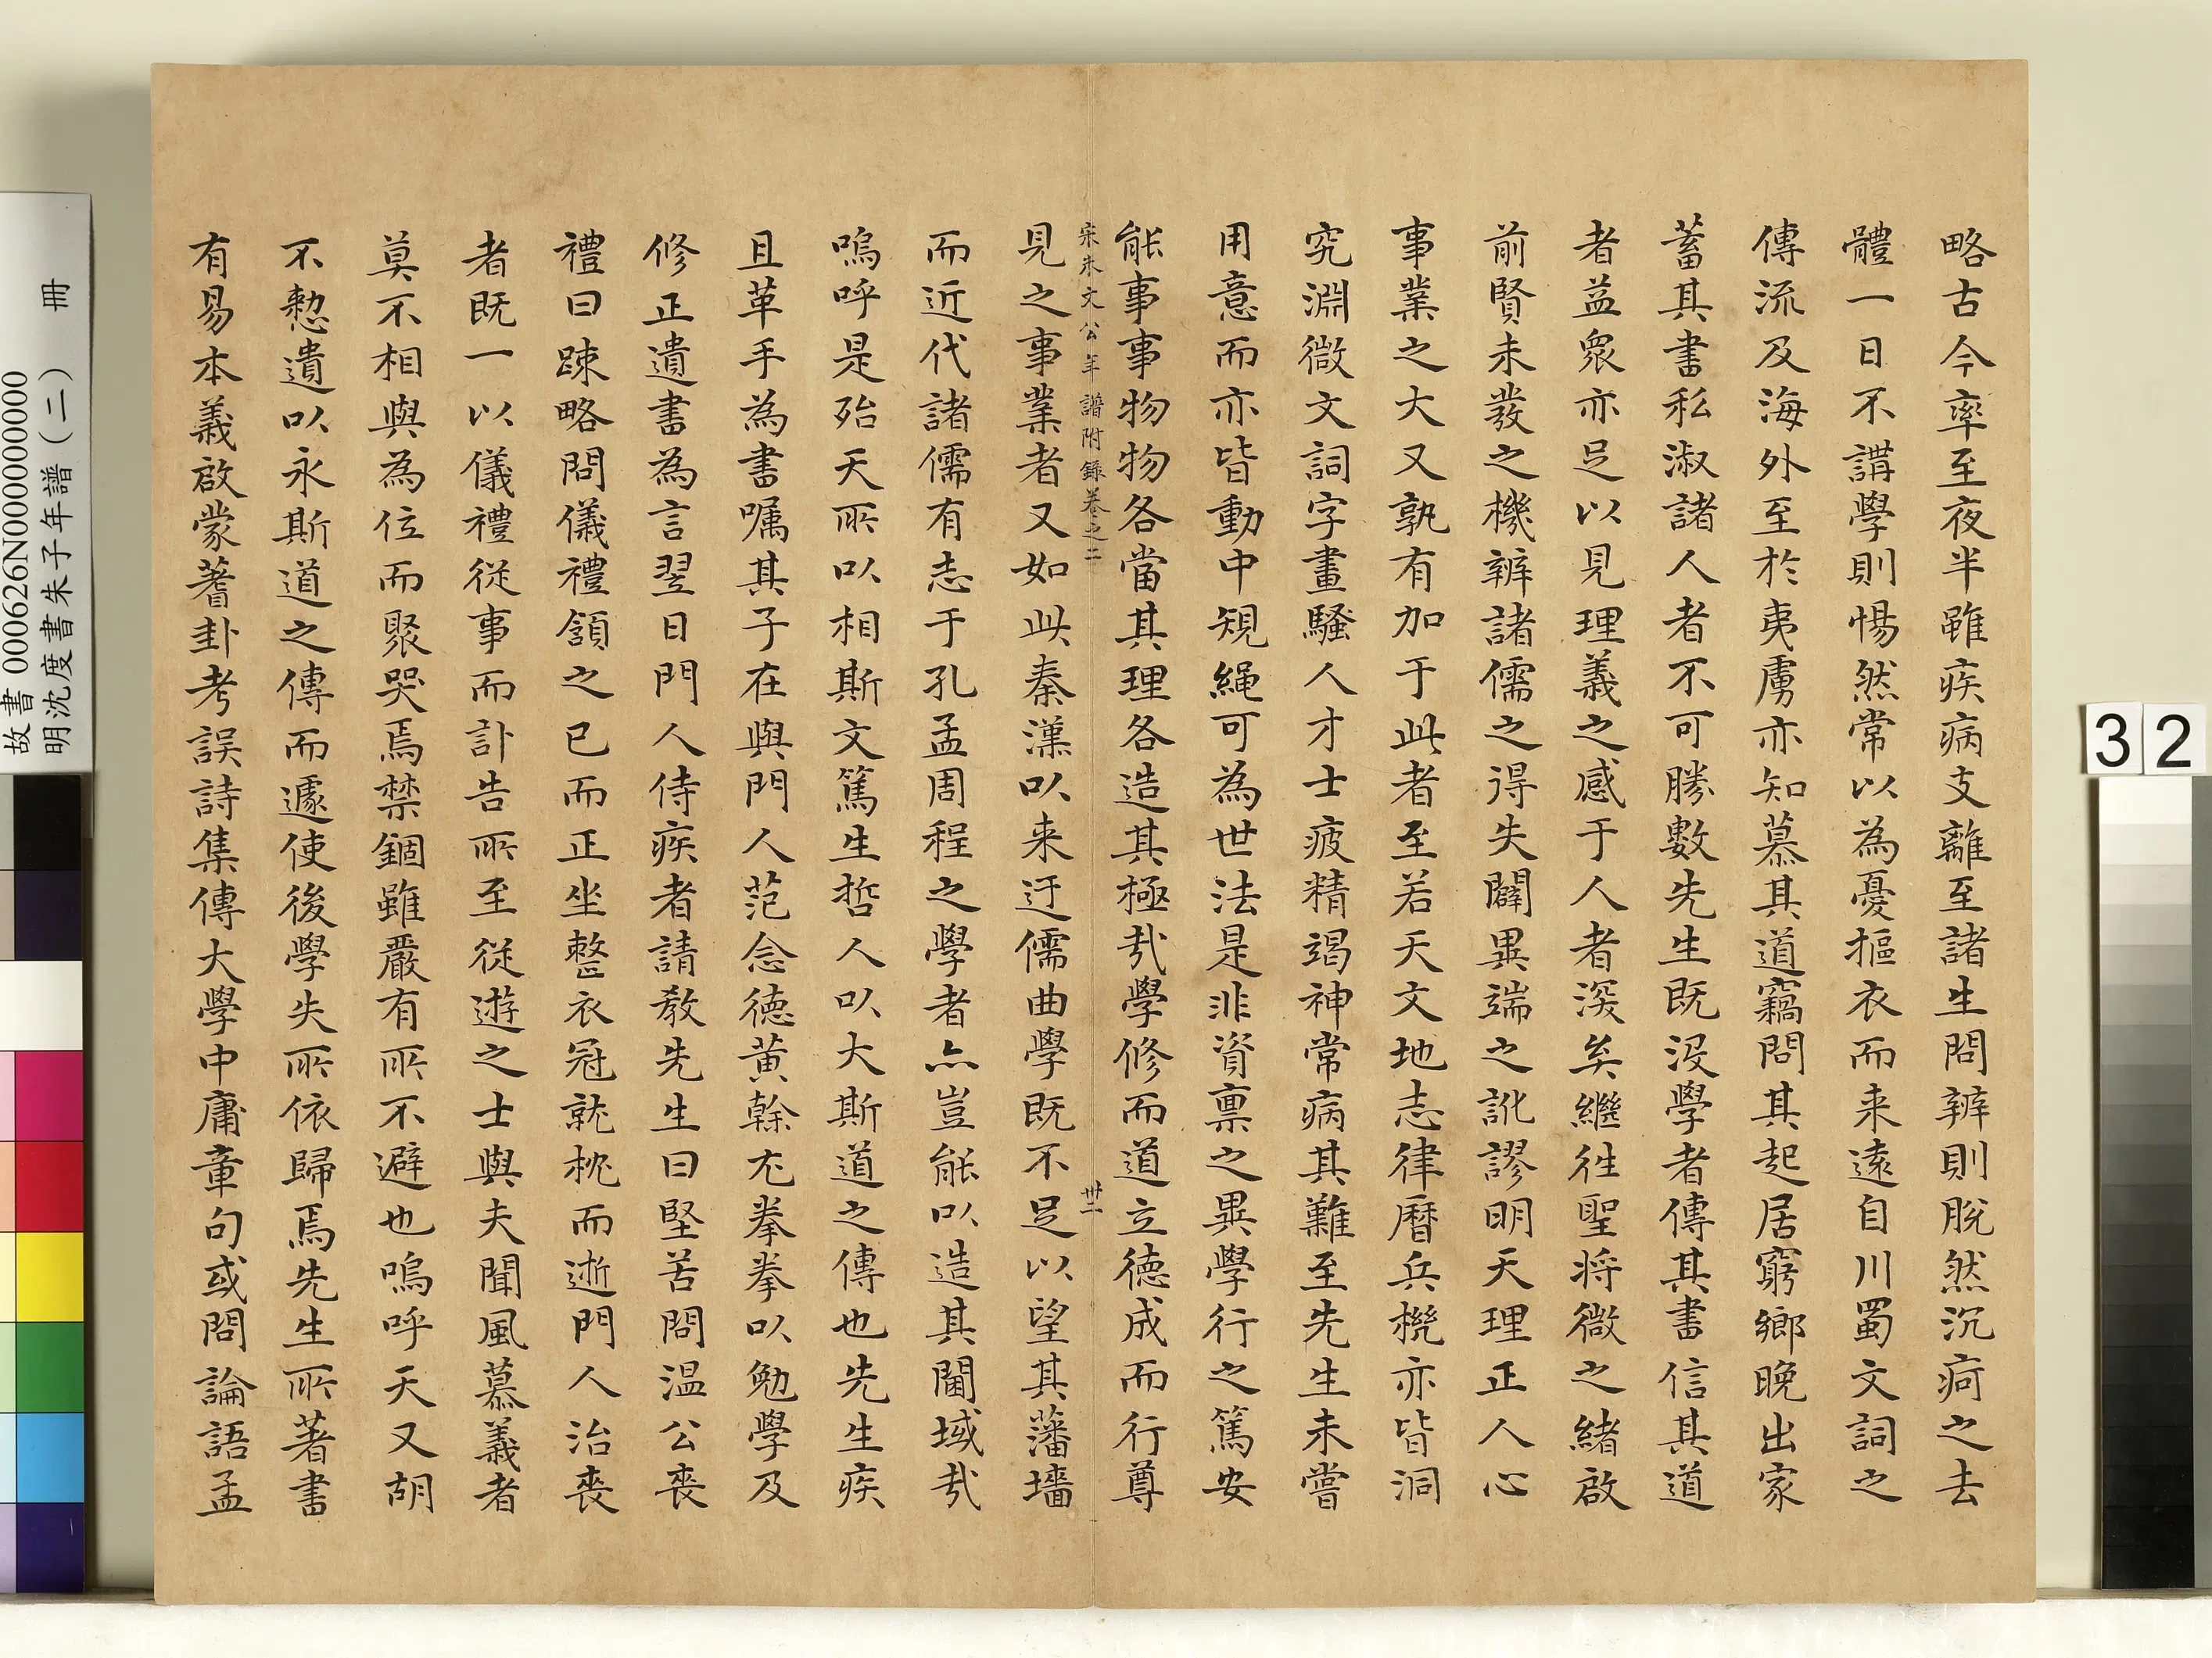 略古今率至夜半雖疾病支離至諸生問辨則脫然沉疴之去
體一日不講學則惕然常以為憂摳衣而来遠自川蜀文詞之
傳流及海外至於夷虜亦知慕其道竊問其起居窮鄉晚出家
蓄其書私淑諸人者不可勝數先生既沒學者傳其書信其道
者益衆亦足以見理義之感于人者深矣繼徃聖将微之緒啟
前賢未發之機辨諸儒之得失闢異端之訛謬明天理正人心
事業之大又孰有加于此者至若天文地志律曆兵機亦皆洞
究淵微文詞字畫騷人才士疲精竭神常病其難至先生未嘗
用意而亦皆動中規繩可為世法是非資禀之異學行之篤安
能事事物物各當其理各造其極哉學修而道立德成而行尊
宋朱文公年譜附錄卷之二
卅二
見之事業者又如此秦漢以来迂儒曲學既不足以望其藩墻
而近代諸儒有志于孔孟周程之學者亦豈能以造其閫域哉
嗚呼是殆天所以相斯文篤生哲人以大斯道之傳也先生疾
且革手為書嘱其子在與門人范念德黄榦尤拳拳以勉學及
修正遺書為言翌日門人侍疾者請教先生曰堅苦問温公喪
禮曰疎略問儀禮頷之已而正坐整衣冠就枕而逝門人治喪
者既一以儀禮從事而訃告所至從遊之士與夫聞風慕義者
莫不相與為位而聚哭焉禁錮雖嚴有所不避也嗚呼天又胡
不憗遺以永斯道之傳而遽使後學失所依歸焉先生所著書
有易本義啟蒙蓍卦考誤詩集傳大學中庸章句或問論語孟
故書 000626N000000000
明沈度書朱子年譜（二） 冊
32